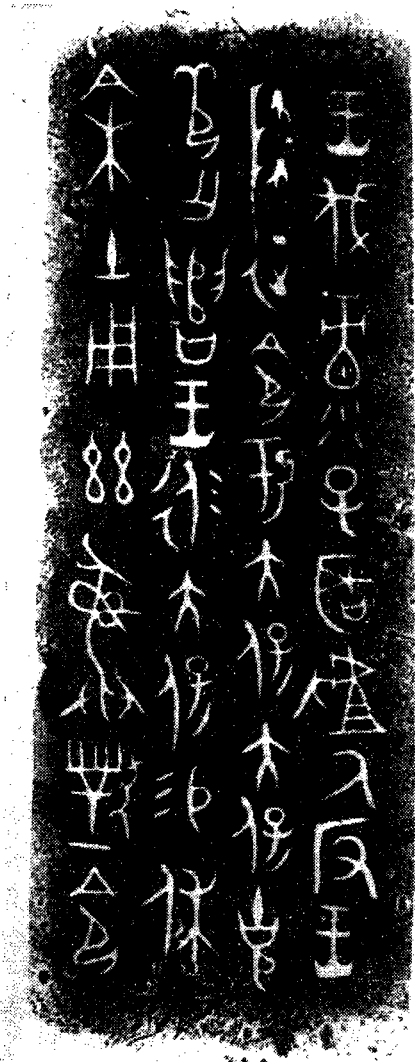 王伐彔子𦔻𠭯氒反王
降征令于大保大保克
芍亡遣王𠂢大保易休
余土用𢆶彝對令